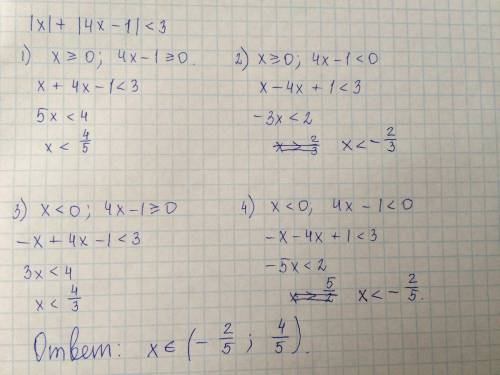 |x| + |4x - 1| < 3
1) x ≥ 0; 4x - 1 ≥ 0.
x + 4x - 1 < 3
5x < 4
x < 4/5
2) x ≥ 0; 4x - 1 < 0
x - 4x + 1 < 3
-3x < 2
x > 2/3 x < - 2/3
3) x < 0; 4x - 1 ≥ 0
-x + 4x - 1 < 3
3x < 4
x < 4/3
4) x < 0; 4x - 1 < 0
-x - 4x + 1 < 3
-5x < 2
x > 5/2 x < - 2/5.
Ответ: x ∈ (- 2/5; 4/5).